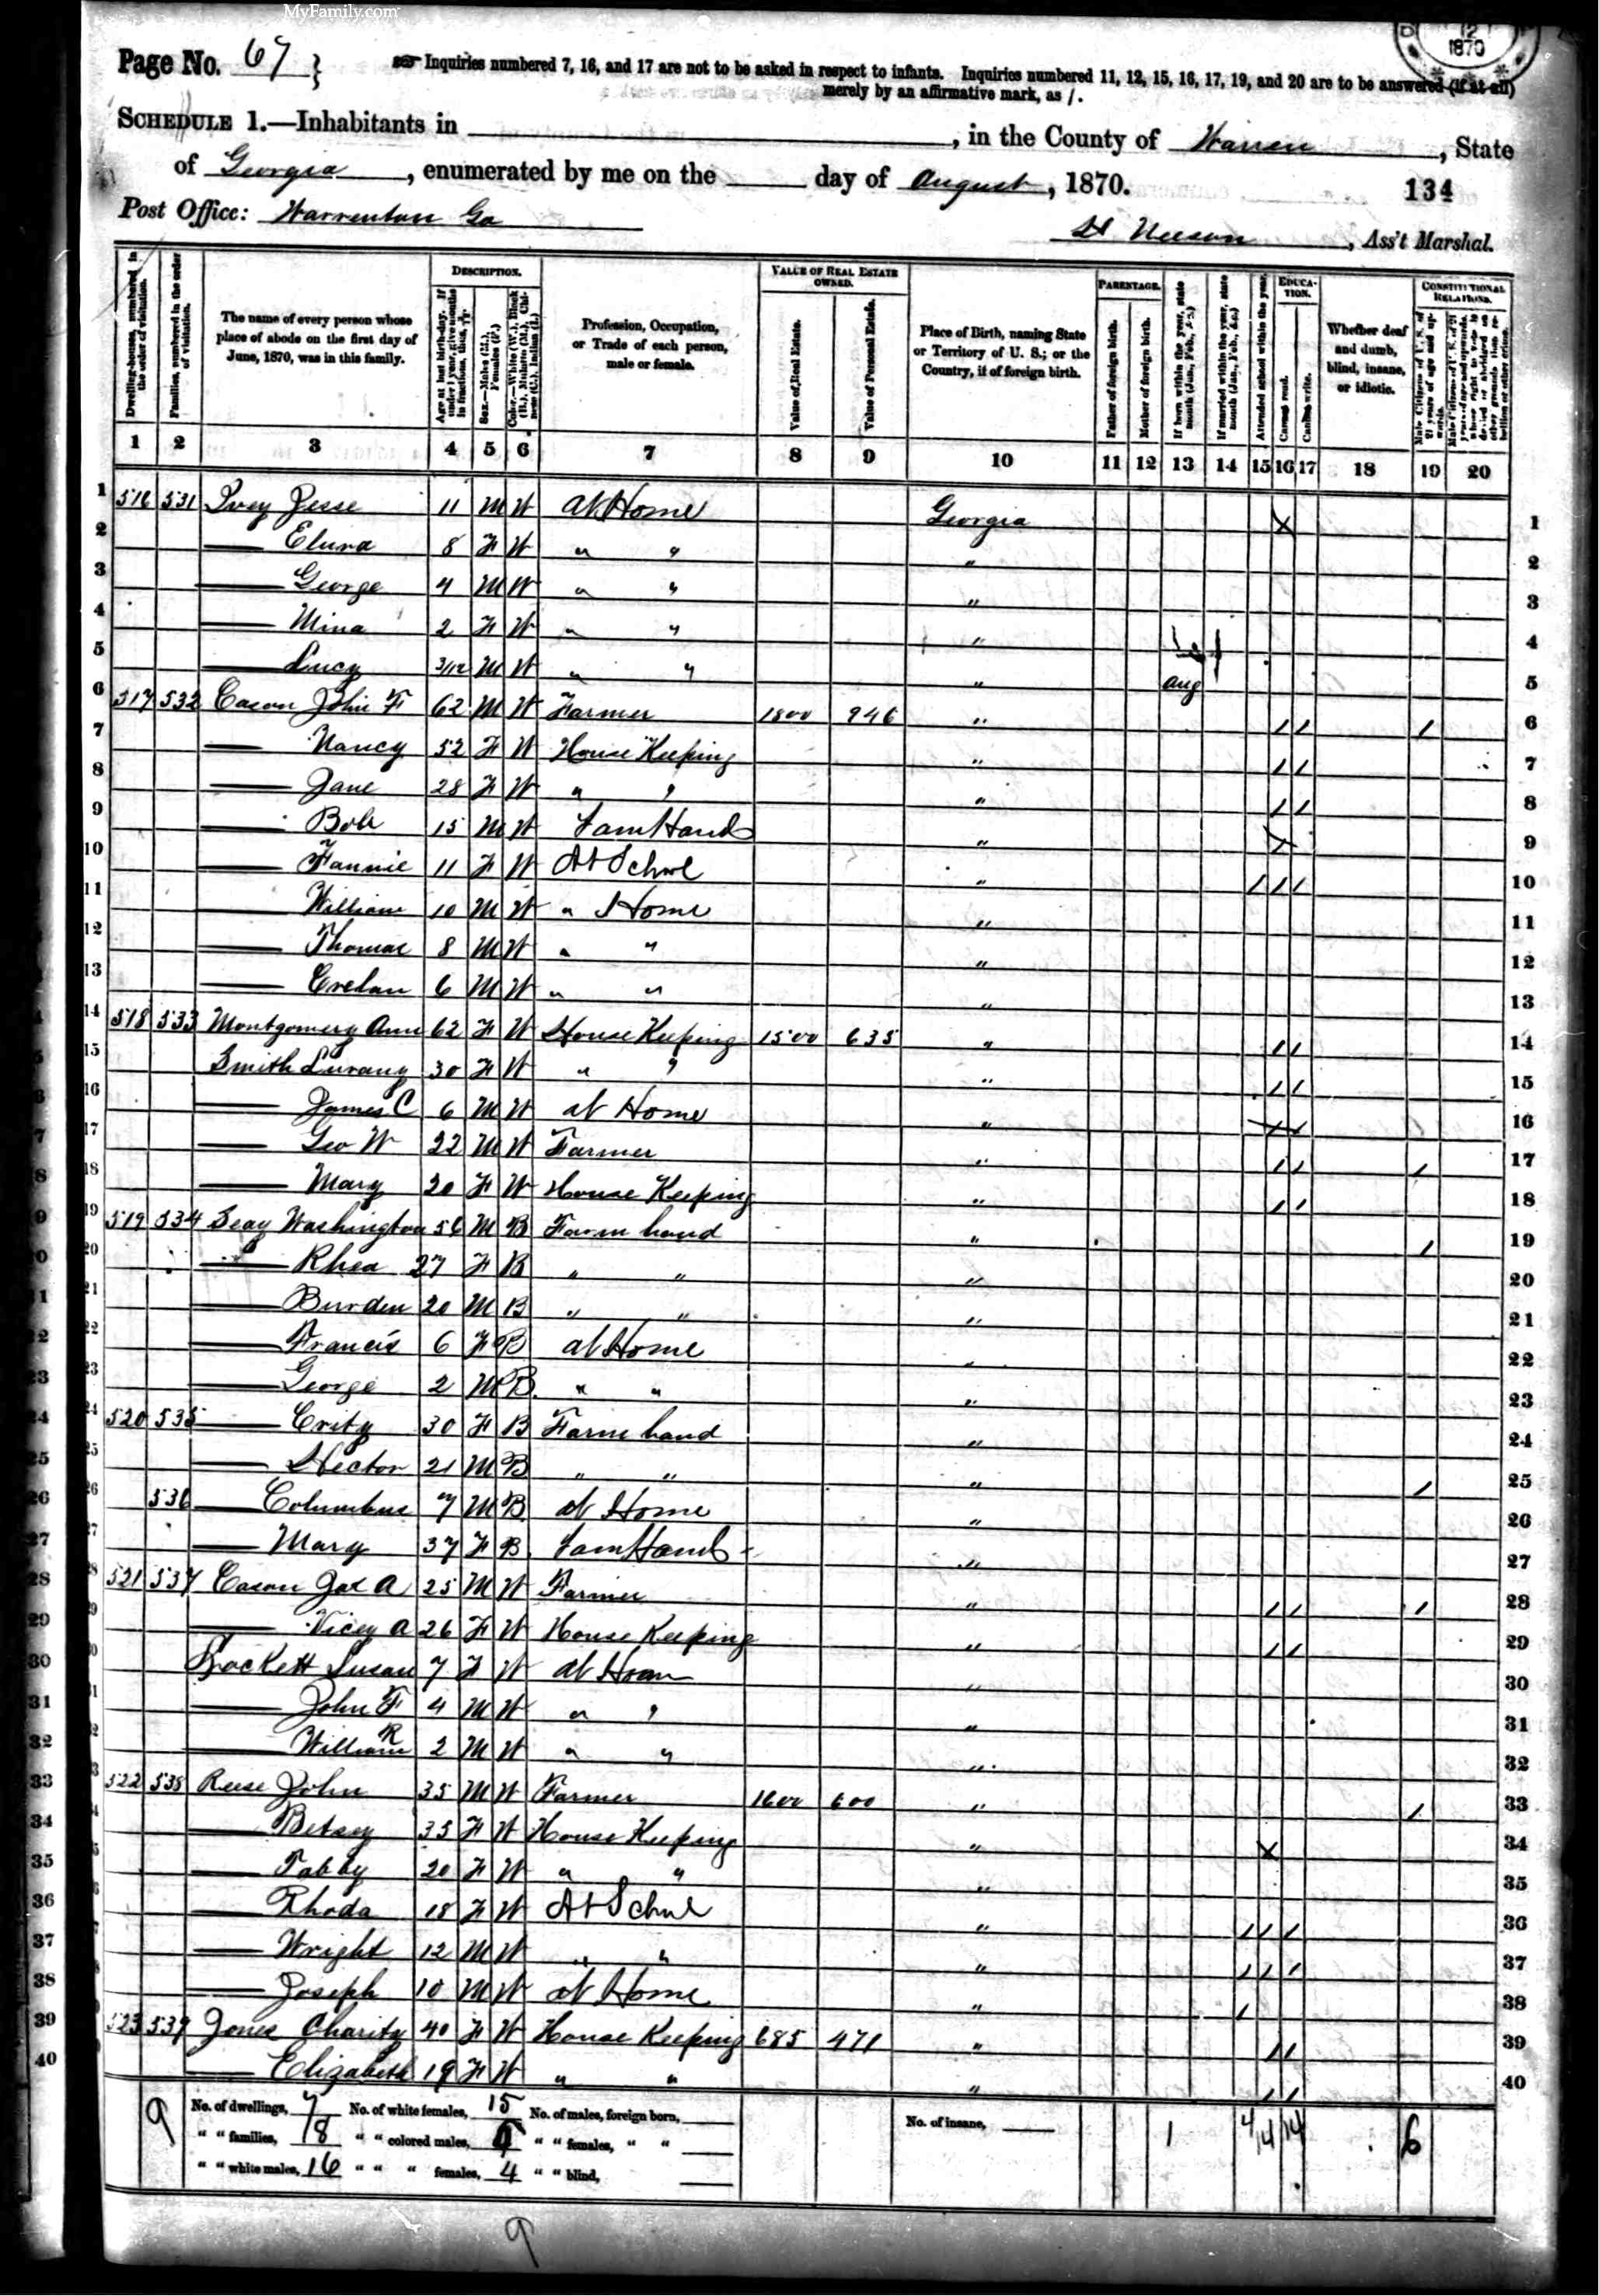 MyFamily.com
12
1870
Page No. 67
Inquiries numbered 7, 16, and 17 are not to be asked in respect to infants. Inquiries numbered 11, 12, 15, 16, 17, 19, and 20 are to be answered (if at all)
merely by an affirmative mark, as /.
SCHEDULE 1.—Inhabitants in , in the County of Warren, State
of Georgia, enumerated by me on the day of August, 1870.
134
Post Office: Warrenton Ga
, Ass't Marshal.
DESCRIPTION. VALUE OF REAL ESTATE OWNED. PARENTAGE. EDUCATION. CONSTITUTIONAL RELATIONS.
Dwelling-houses, numbered in the order of visitation.
Families, numbered in the order of visitation.
The name of every person whose place of abode on the first day of June, 1870, was in this family.
Age at last birth-day. If under 1 year, give months in fractions, thus, 3/12
Sex.—Males (M.), Females (F.)
Color.—White (W.), Black (B.), Mulatto (M.), Chinese (C.), Indian (I.)
Profession, Occupation, or Trade of each person, male or female.
Value of Real Estate.
Value of Personal Estate.
Place of Birth, naming State or Territory of U. S.; or the Country, if of foreign birth.
Father of foreign birth.
Mother of foreign birth.
If born within the year, state month (Jan., Feb., &c.)
If married within the year, state month (Jan., Feb., &c.)
Attended school within the year.
Cannot read.
Cannot write.
Whether deaf and dumb, blind, insane, or idiotic.
1 2 3 4 5 6 7 8 9 10 11 12 13 14 15 16 17 18 19 20
1 516 531 Ivey Jesse 11 M W At Home Georgia X 1
2 — Elura 8 F W " " " 2
3 — George 4 M W " " " 3
4 — Mina 2 F W " " " 4
5 — Lucy 3/12 M W " " " Aug 5
6 517 532 Cason John F 62 M W Farmer 1800 946 " / / / 6
7 — Nancy 52 F W House Keeping " / / 7
8 — Jane 28 F W " " " / / 8
9 — Bob 15 M W Farm Hand " X 9
10 — Fannie 11 F W At School " / / / 10
11 — William 10 M W " Home " 11
12 — Thomas 8 M W " " " 12
13 — 6 M W " " " 13
14 518 533 Montgomery Ann 62 F W House Keeping 1500 635 " / / 14
15 Smith Lurany 30 F W " " " / / 15
16 — James C 6 M W at Home " 16
17 — Geo W 22 M W Farmer " / / / 17
18 — Mary 20 F W House Keeping " / / 18
19 519 534 Seay Washington 56 M B Farm hand " / 19
20 — Rhea 27 F B " " " 20
21 — Burden 20 M B " " " 21
22 — Francis 6 F B at Home " 22
23 — George 2 M B " " " 23
24 520 535 — Crity 30 F B Farm hand " 24
25 — Hector 21 M B " " " / 25
26 536 — Columbus 7 M B at Home " 26
27 — Mary 37 F B Farm Hand " 27
28 521 537 Cason Jas A 25 M W Farmer " / / / 28
29 — Vicey A 26 F W House Keeping " / / 29
30 Lockett Susan 7 F W at Home " 30
31 — John F 4 M W " " " 31
32 — William R 2 M W " " " 32
33 522 538 Reese John 35 M W Farmer 1600 600 " / 33
34 — Betsey 35 F W House Keeping " X 34
35 — Tabby 20 F W " " " 35
36 — Rhoda 18 F W At School " / / / 36
37 — Wright 12 M W " " " / / / 37
38 — Joseph 10 M W at Home " / 38
39 523 539 Jones Charity 40 F W House Keeping 685 471 " / / 39
40 — Elizabeth 19 F W " " " / / 40
9 No. of dwellings, 7 No. of white females, 15 No. of males, foreign born, No. of insane, 1 4 14 14 6
" " families, 8 " " colored males, " " females, " "
" " white males, 16 " " " females, 4 " " blind,
9